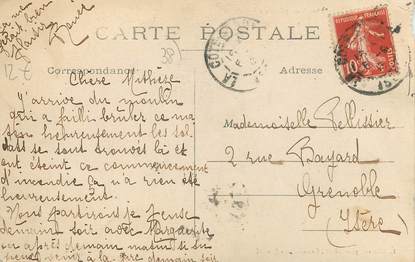 CARTE POSTALE
Correspondance
Adresse
LA COTE
10
38
12 €
Chère Mathèse
J'arrive du moulin
qui a failli bruler ce ma
tin heureusement les sol
dats se sont trouvés là et
ont éteint ce commencement
d'incendie ça n'a rien été
heureusement.
Nous partirons je pense
demain soir avec Marguerite
ou après demain matin si on
peut venir à la gare demain soir
Mademoiselle Pellissier
2 rue Bayard
Grenoble
(Isère)